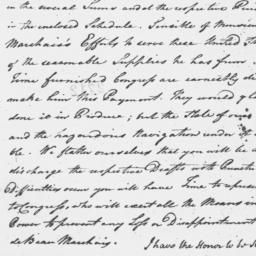 in the several Sums and at the respective Peri
in the enclosed Schedule. Sensible of Monsieu
Marchais's Efforts to serve these United Sta
of the seasonable Supplies he has from
Time furnished Congress are earnestly di
make him this Payment. They would gla
done it in Produce; but the State of our
and the hazardous Navigation under
ble. We flatter ourselves that you will be a
discharge the respective Drafts with Punctu
Difficulties occur you will have Time to
to Congress, who will exert all the Means in
Power to prevent any Loss or Disappointment
de Beau Marchais.
I have the Honor to be